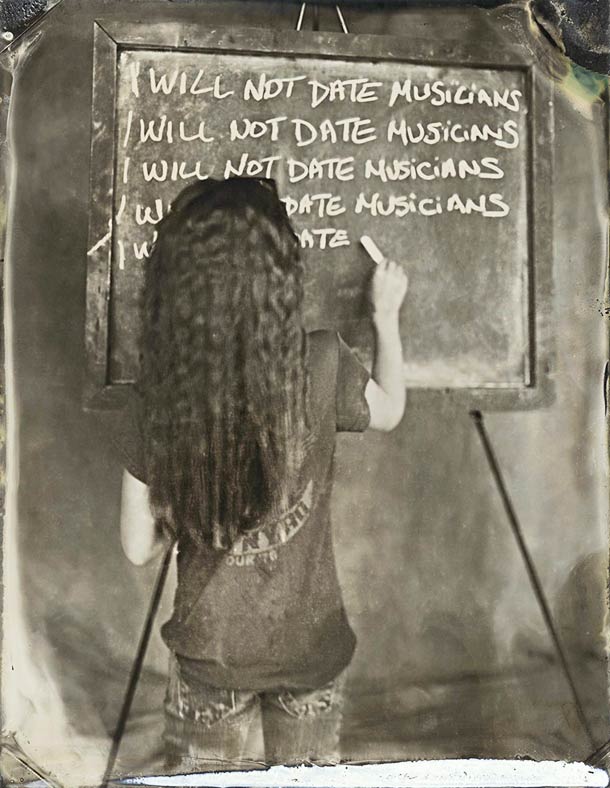 I WILL NOT DATE MUSICIANS
I WILL NOT DATE MUSICIANS
I WILL NOT DATE MUSICIANS
I DATE MUSICIANS
I DATE
OUR '78